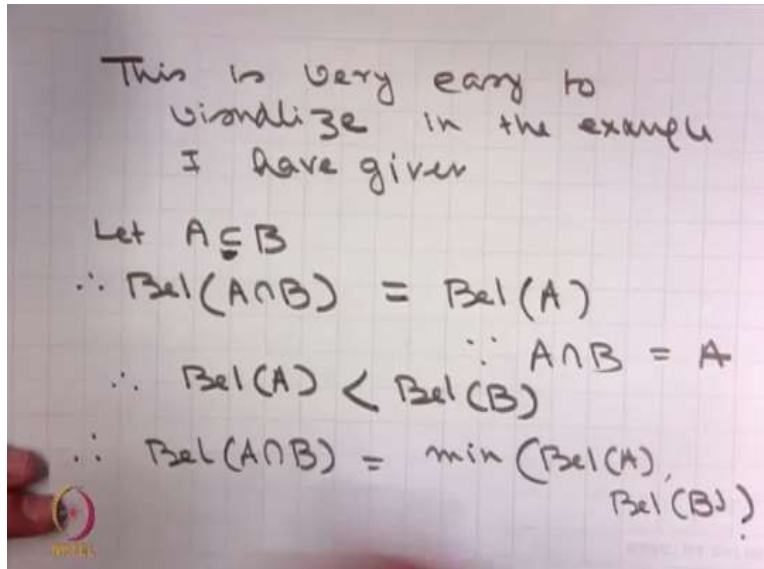 This is very easy to
visualize in the example
I have given
Let A ⊆ B
∴ Bel(A∩B) = Bel(A)
∵ A∩B = A
∴ Bel(A) < Bel(B)
∴ Bel(A∩B) = min(Bel(A),
Bel(B))
NPTEL